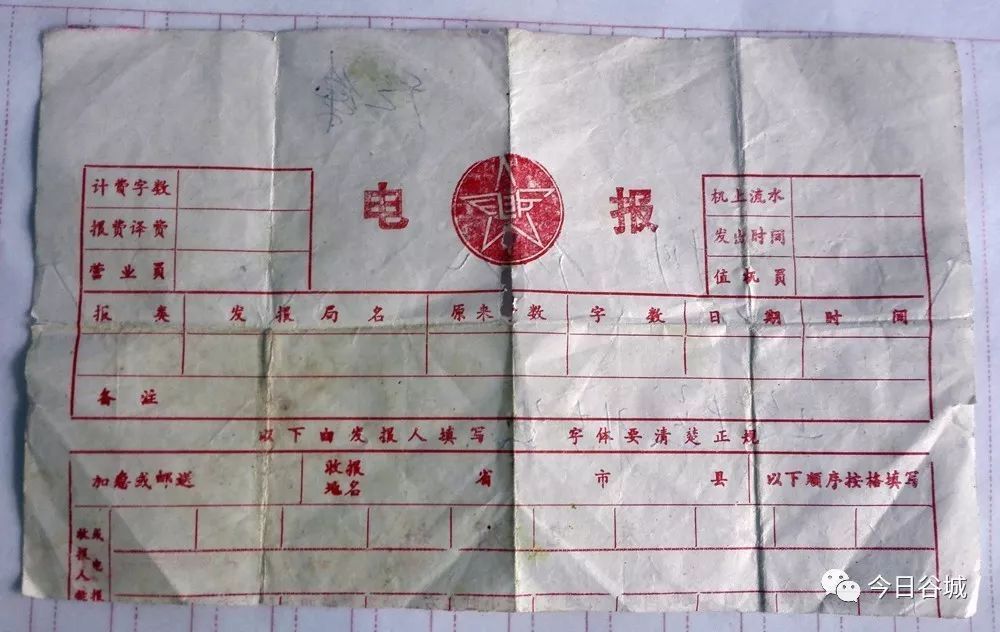 电 报
计费字数
报费译费
营业員
机上流水
发出时间
值机員
报类 发报局名 原来 数 字数 日期 时间
备注
以下由发报人填写 字体要清楚正规
加急或邮送 收报地名 省 市 县 以下顺序按格填写
收报人
或电报
今日谷城